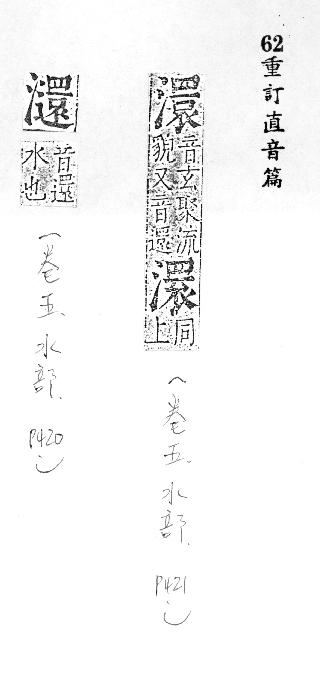 62重訂直音篇
澴音玄聚流貌又音還㵌同上
（卷五、水部、P421）
㶎音還水也
（卷五、水部、P420）